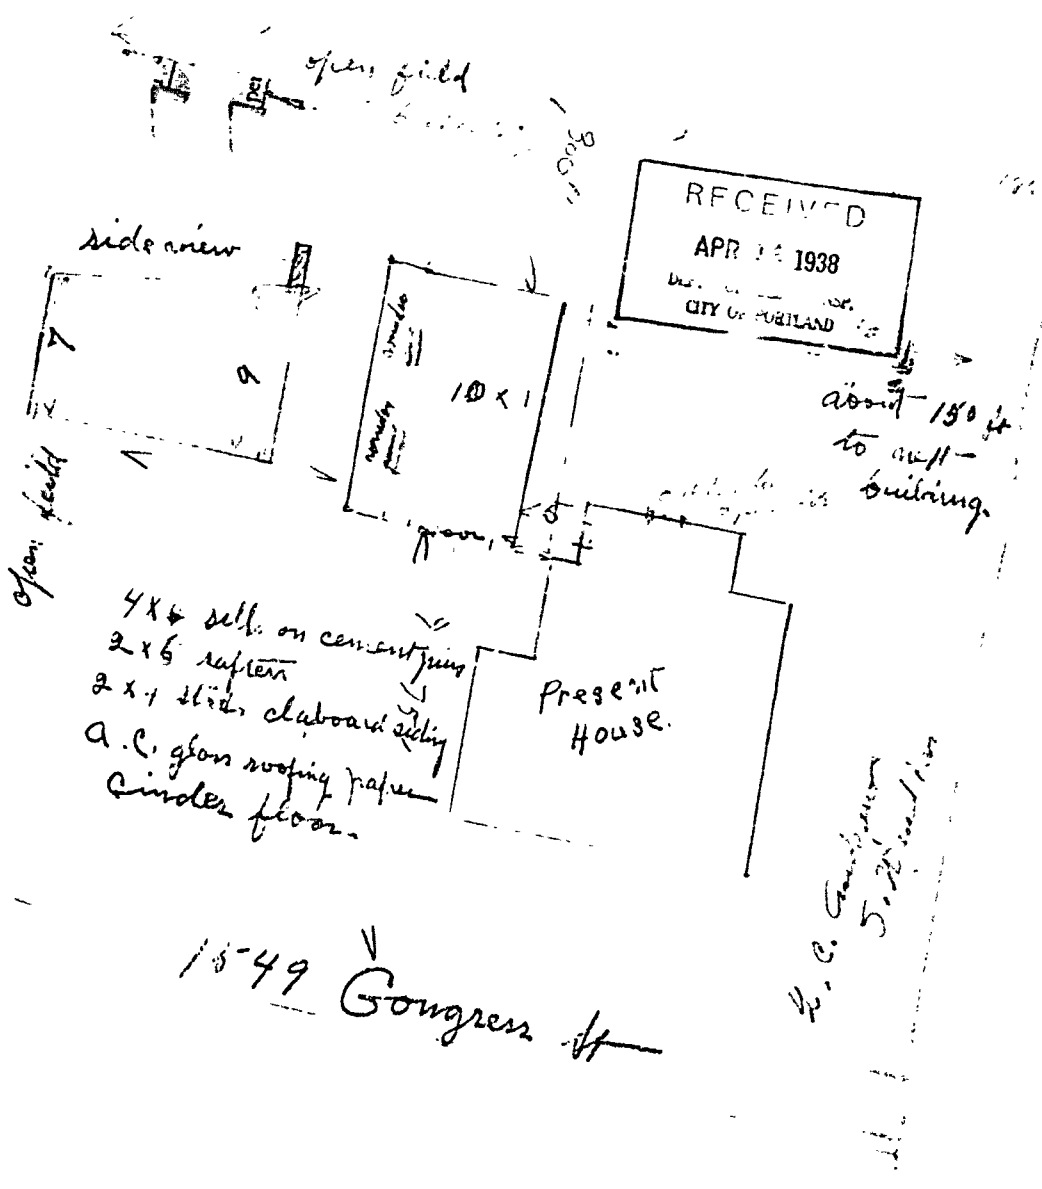 open field
300 ft
RECEIVED
APR 1938
CITY OF PORTLAND
side view
7
9
10 x 1
window
window
door
8
about 150 ft
to next
building.
open field
4 x 6 sill on cement piers
2 x 6 rafters
2 x 4 studs claboard siding
a.C. glass roofing paper
Cinder floor.
Present
House.
1549 Congress St